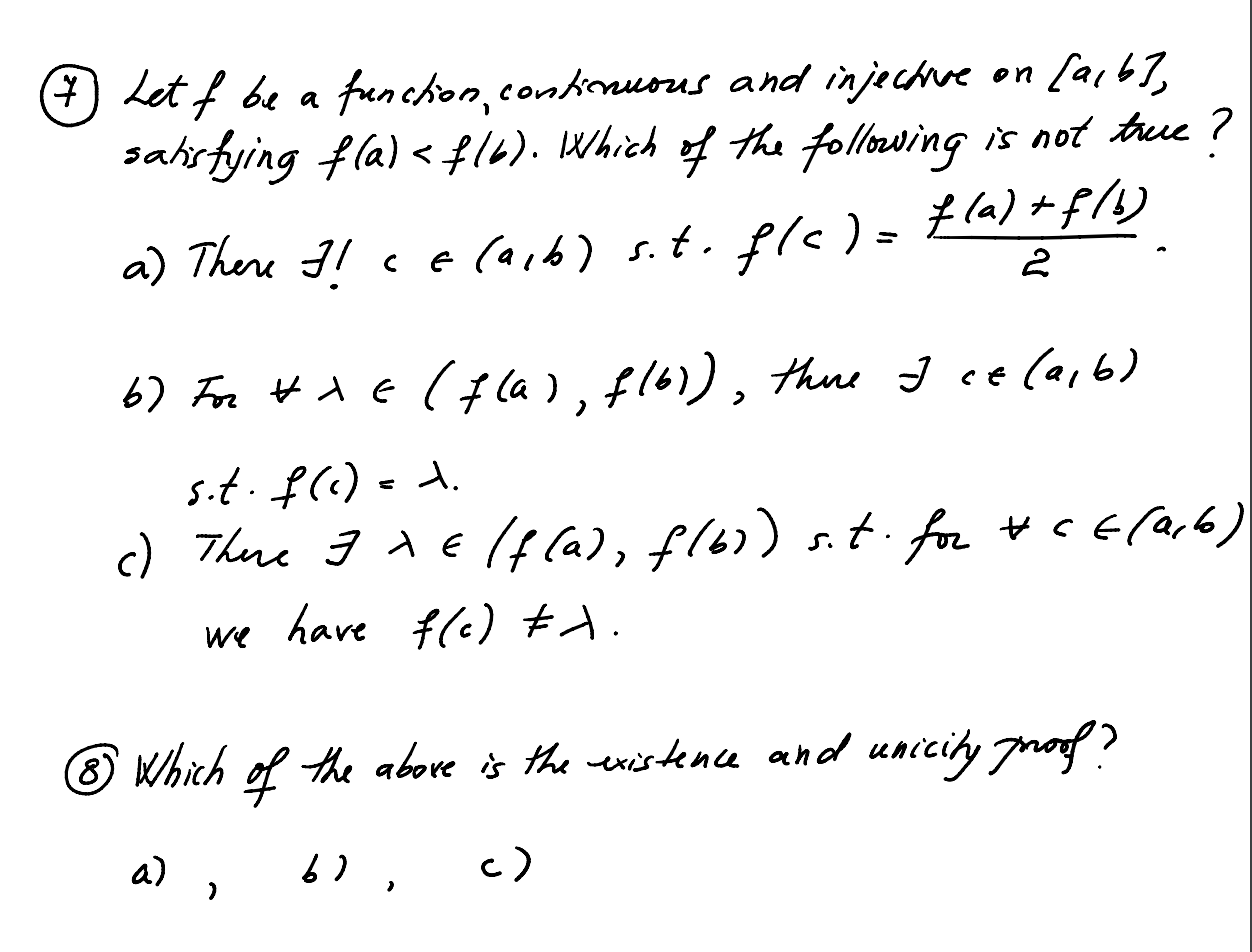 ⑦ Let f be a function, continuous and injective on [a,b],
satisfying f(a) < f(b). Which of the following is not true?
a) There ∃! c ∈ (a,b) s.t. f(c) = (f(a) + f(b))/2.
b) For ∀ λ ∈ (f(a), f(b)), there ∃ c ∈ (a,b)
s.t. f(c) = λ.
c) There ∃ λ ∈ (f(a), f(b)) s.t. for ∀ c ∈ (a,b)
we have f(c) ≠ λ.
⑧ Which of the above is the existence and unicity proof?
a) , b) , c)